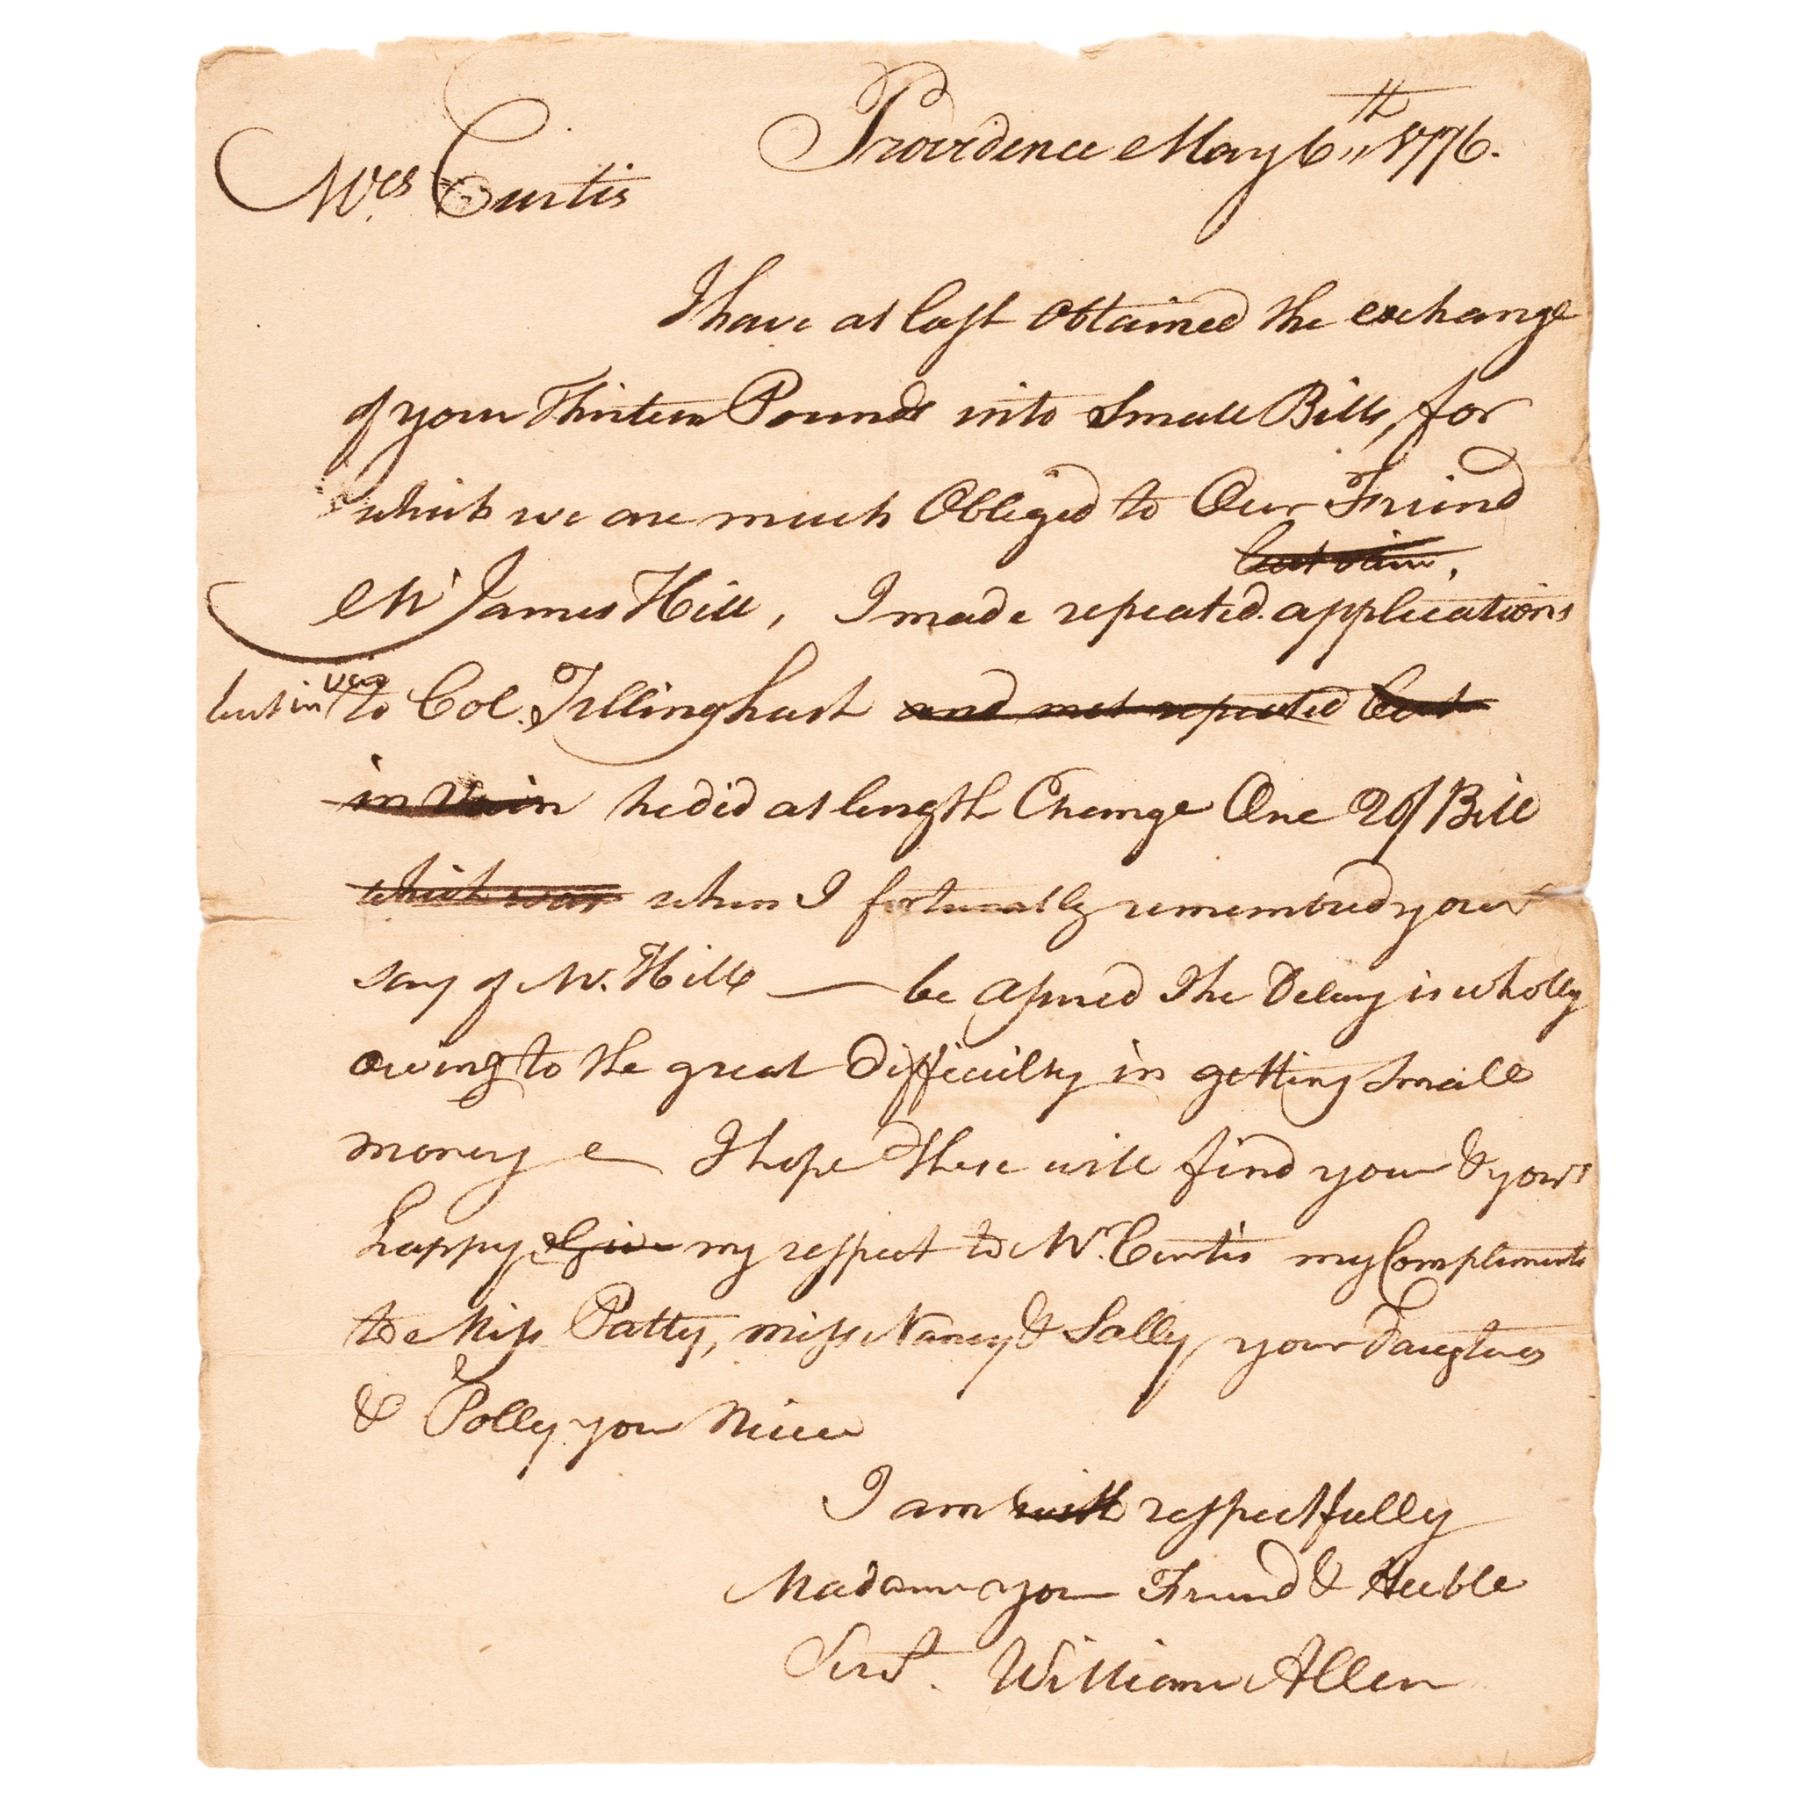 Providence May 6th 1776.
Mrs Curtis
I have at last obtained the exchange
of your Thirteen Pounds into Small Bills, for
which we are much Obliged to Our Friend
but vain.
Mr James Hill, I made repeated applications
but in vain to Col. Tillinghast and met repeated but
in vain he did at length Change One 20/ Bill
which was when I fortunatly remembred your
say of Mr. Hill — be assured The Delay is wholly
owing to the great Difficulty in getting Small
money — I hope These will find your & yours
happy & Give my respect to Mr. Curtis my Compliments
to Miss Patty, miss Nancy & Sally your Daughters
& Polly your Niece
I am with respectfully
Madam your Friend & Huble
Servt. William Allen